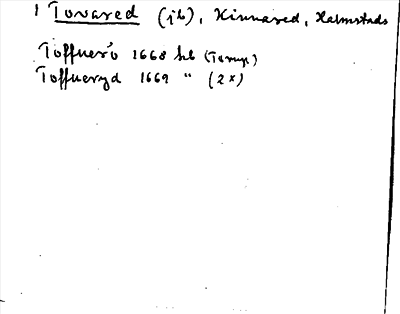 1 Tovared (jb), Kinnared, Halmstads
Toffuerö 1668 hb (Torup)
Toffueryd 1669 " (2x)